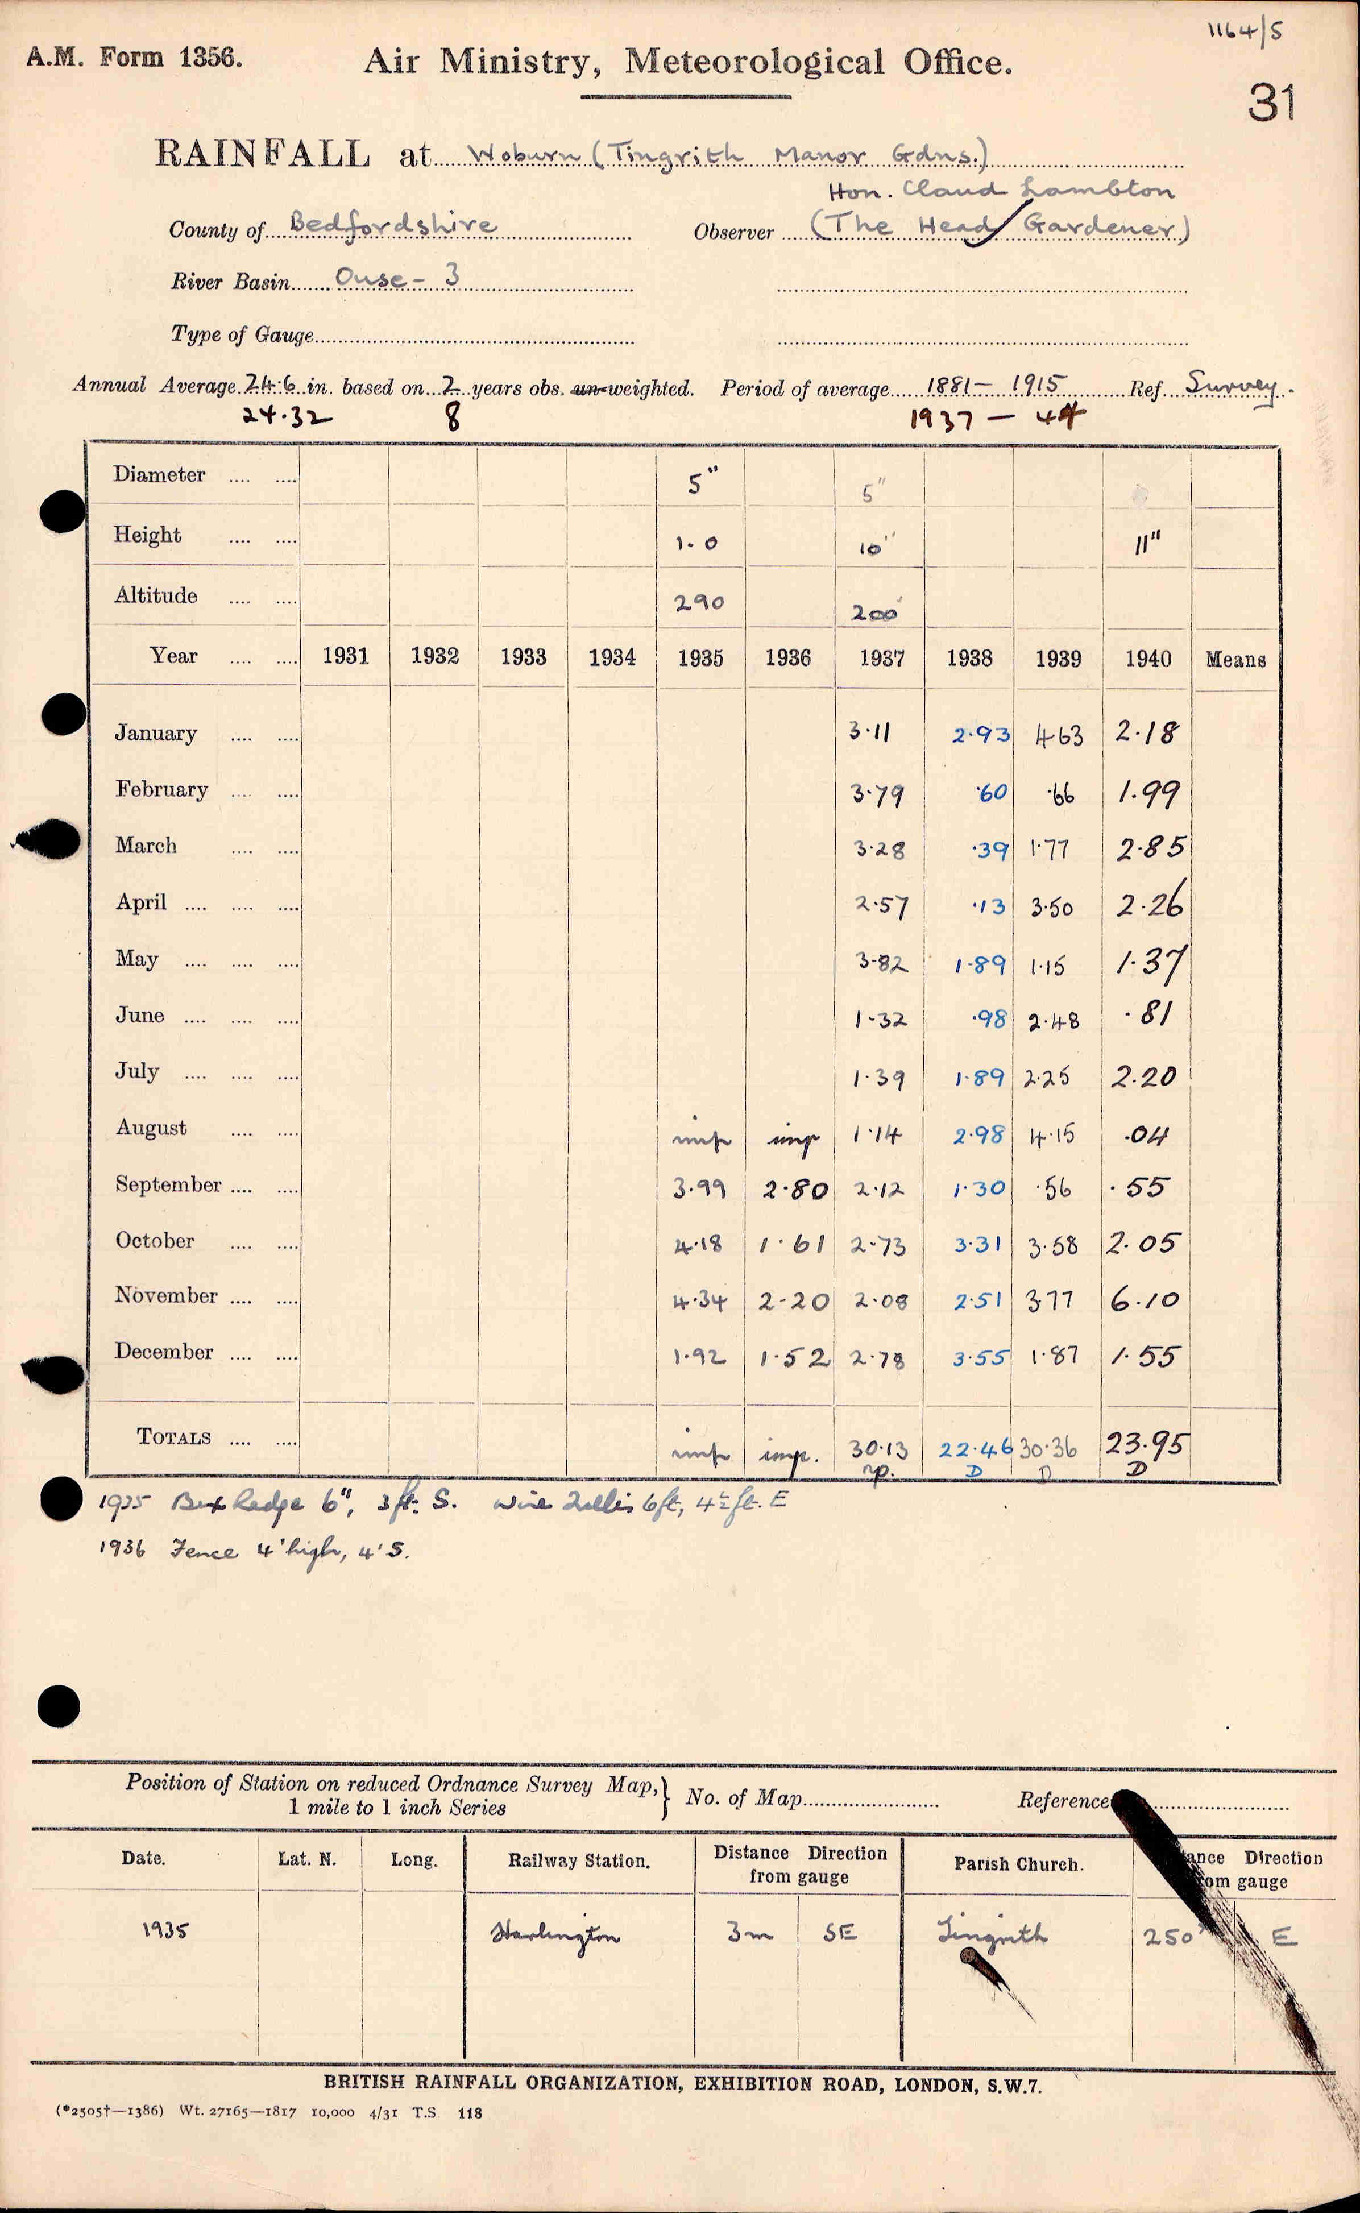 1164/5
A.M. Form 1356. Air Ministry, Meteorological Office.
31
RAINFALL at Woburn (Tingrith Manor Gdns.)
Hon. Claud Lambton
County of Bedfordshire Observer (The Head Gardener)
River Basin Ouse - 3
Type of Gauge
Annual Average 24.6 in. based on 2 years obs. un-weighted. Period of average 1881 - 1915 Ref. Survey.
24.32 8 1937 - 44
Diameter 5" 5"
Height 1.0 10" 11"
Altitude 290 200'
Year 1931 1932 1933 1934 1935 1936 1937 1938 1939 1940 Means
January 3.11 2.93 4.63 2.18
February 3.79 .60 .66 1.99
March 3.28 .39 1.77 2.85
April 2.57 .13 3.50 2.26
May 3.82 1.89 1.15 1.37
June 1.32 .98 2.48 .81
July 1.39 1.89 2.25 2.20
August imp imp 1.14 2.98 4.15 .04
September 3.99 2.80 2.12 1.30 .56 .55
October 4.18 1.61 2.73 3.31 3.58 2.05
November 4.34 2.20 2.08 2.51 3.77 6.10
December 1.92 1.52 2.78 3.55 1.87 1.55
TOTALS imp imp. 30.13 22.46 30.36 23.95
D D D
1935 Box Hedge 6", 3 ft. S. Wire Trellis 6ft, 4½ft. E
1936 Fence 4' high, 4' S.
Position of Station on reduced Ordnance Survey Map, } No. of Map Reference
1 mile to 1 inch Series
Date. Lat. N. Long. Railway Station. Distance Direction from gauge Parish Church. Direction gauge
1935 Harlington 3m SE Tingrith 250 E
BRITISH RAINFALL ORGANIZATION, EXHIBITION ROAD, LONDON, S.W.7.
(*2505†—1386) Wt. 27165—1817 10,000 4/31 T.S 118